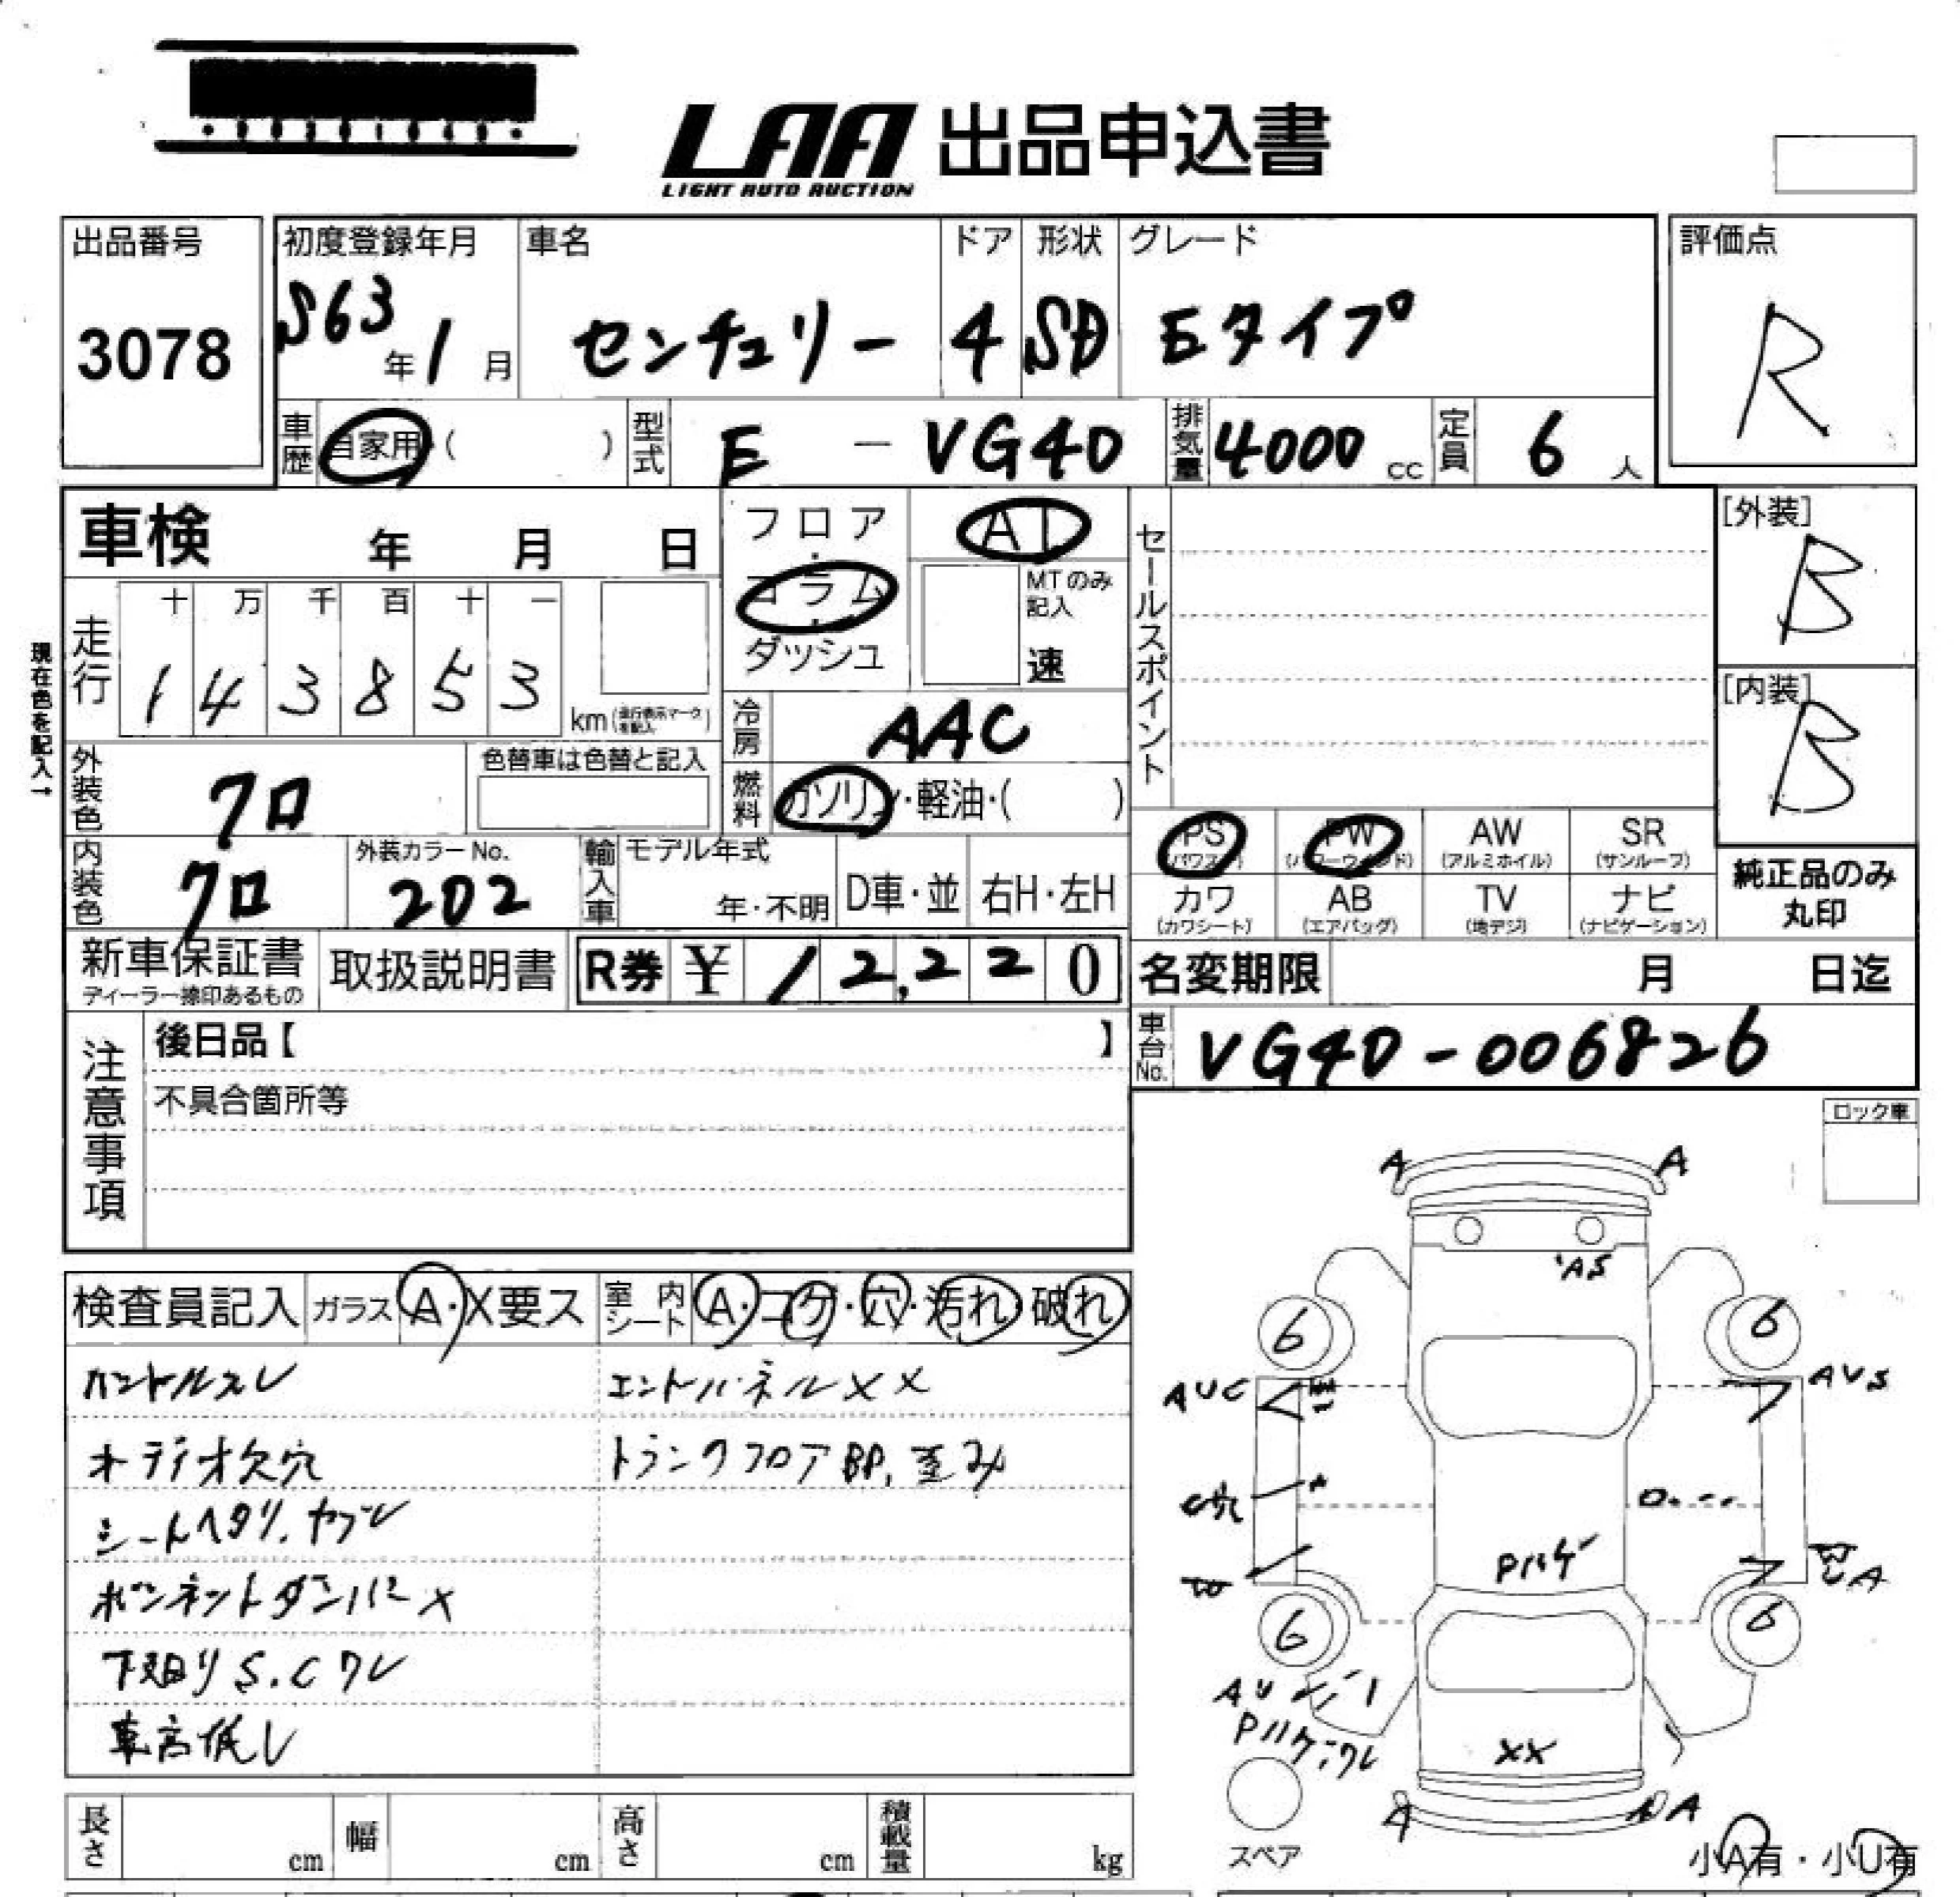 LAA 出品申込書
LIGHT AUTO AUCTION
出品番号
3078
初度登録年月
S63年1月
車名
センチュリー
ドア
4
形状
SD
グレード
Eタイプ
評価点
R
車歴 自家用・( )
型式 E - VG40
排気量 4000 cc
定員 6 人
車検 年 月 日
フロア・コラム・ダッシュ
AT
MTのみ記入
速
セールスポイント
[外装]
B
[内装]
B
現在色を記入→
走行
十 万 千 百 十 一
1 4 3 8 5 3
km(走行表示マークを記入)
冷房 AAC
外装色 クロ
色替車は色替と記入
燃料 ガソリン・軽油・( )
内装色 クロ
外装カラーNo.
202
輸入車
モデル年式
年・不明
D車・並
右H・左H
PS (パワステ)
PW (パワーウィンド)
AW (アルミホイル)
SR (サンルーフ)
カワ (カワシート)
AB (エアバッグ)
TV (地デジ)
ナビ (ナビゲーション)
純正品のみ
丸印
新車保証書
ディーラー捺印あるもの
取扱説明書
R券 ¥ 12,220
名変期限 月 日迄
車台No. VG40-006826
注意事項
後日品【 】
不具合箇所等
ロック車
検査員記入
ガラス A・X要ス
室内シート A・コゲ・穴・汚れ・破れ
ハンドルスレ
エンドパネルXX
オーディオ欠穴
トランクフロアBP,歪み
シートヘタリ、ヤブレ
ボンネットダンパーX
下廻りS.Cワレ
車高低し
A
A
AS
6
6
AUC
AUS
C穴
Pハゲ
UA
6
6
AU
Pハゲ,ワレ
XX
A
A
スペア
小A有・小U有
長さ cm
幅 cm
高さ cm
積載量 kg